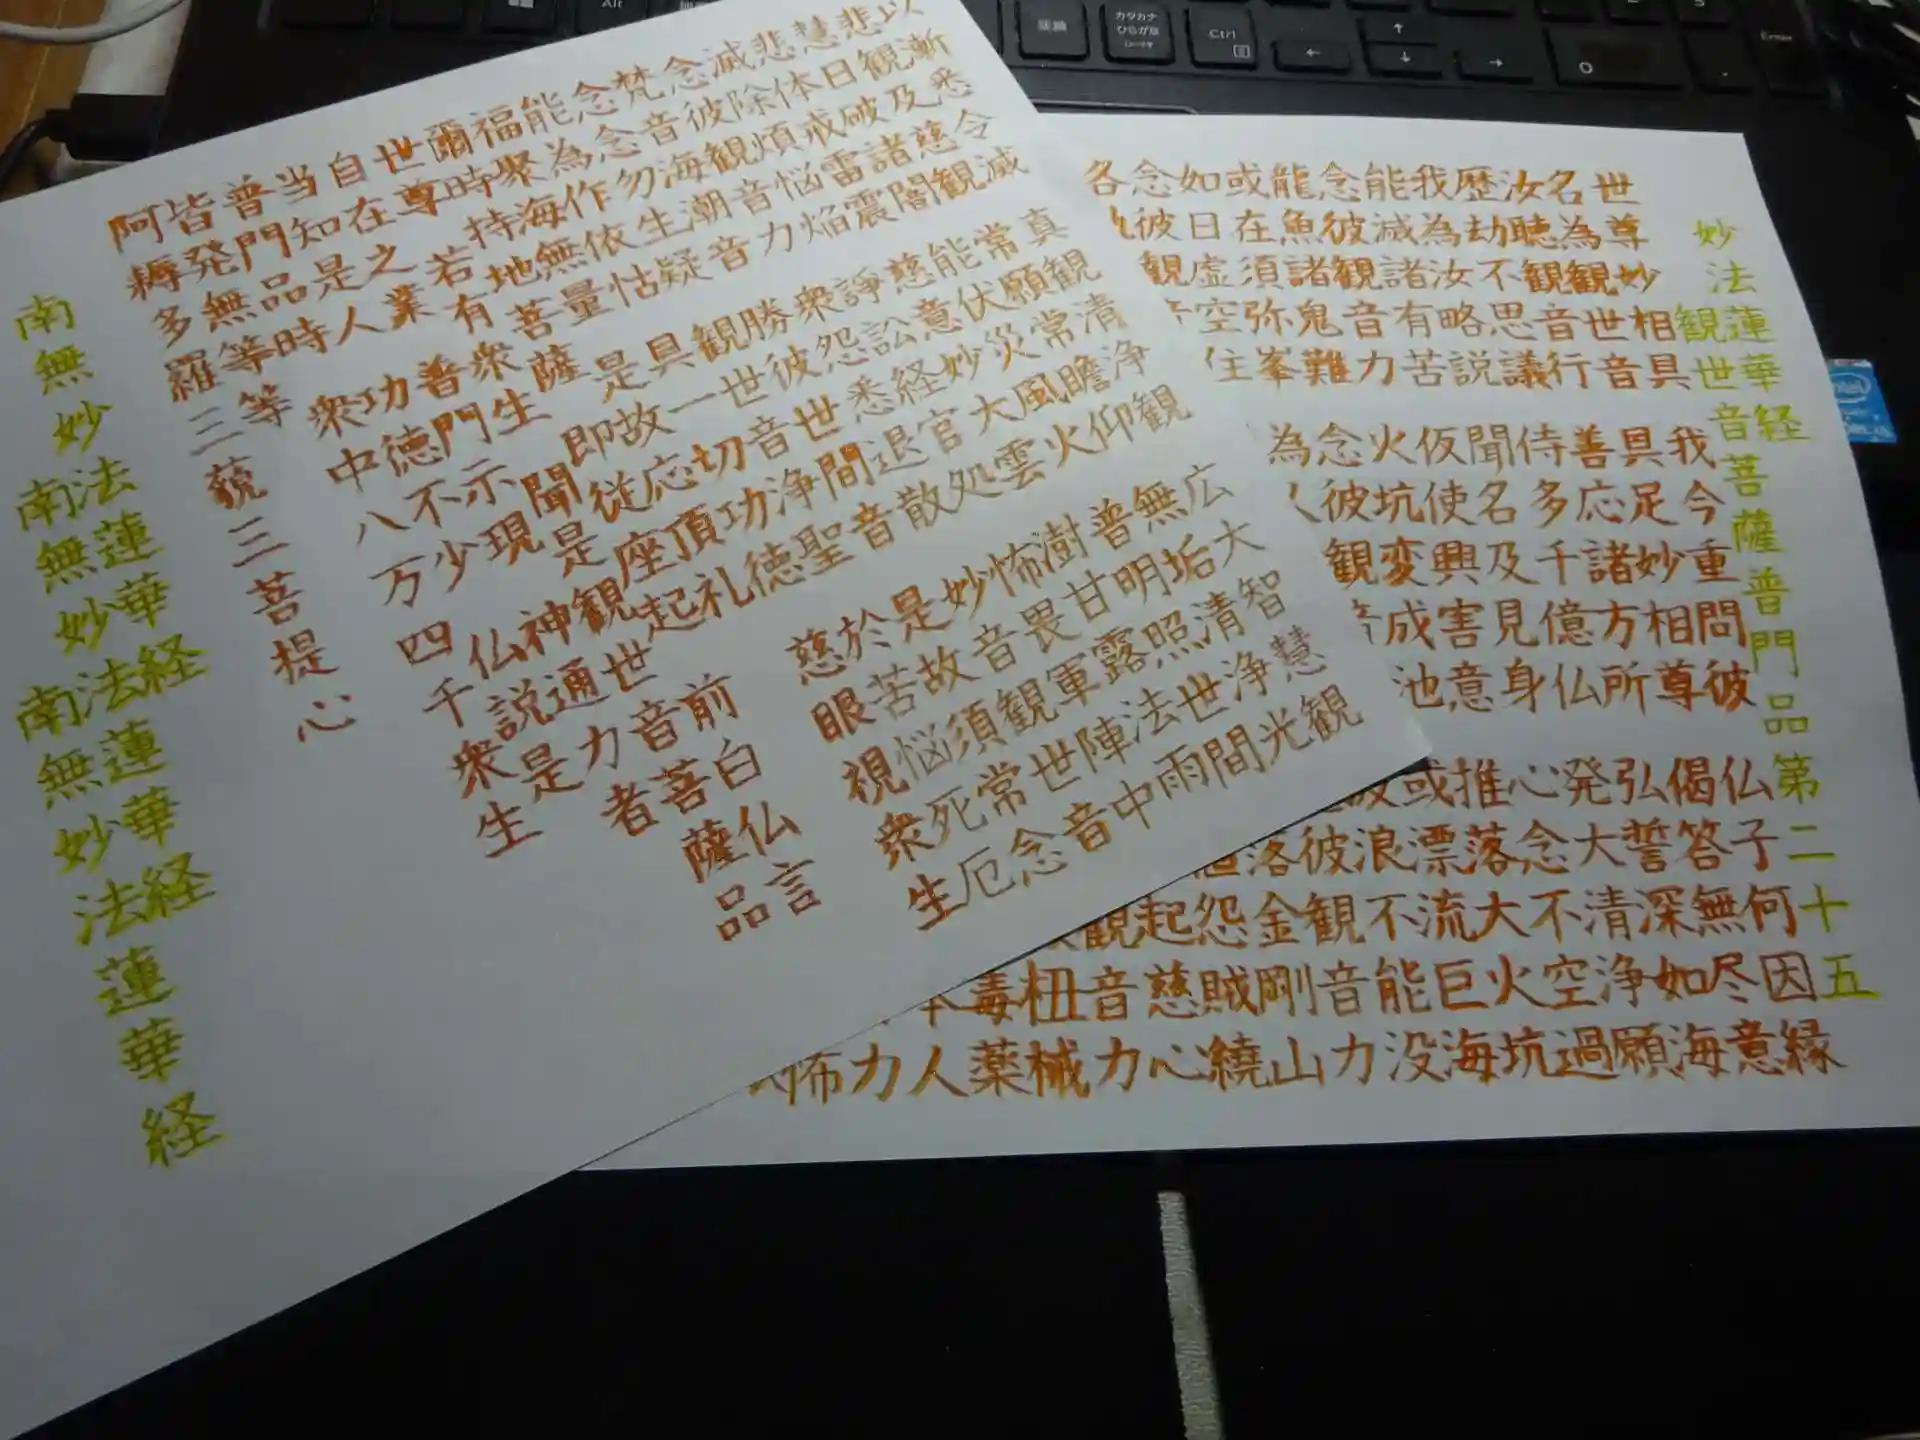 妙法蓮華経
観世音菩薩普門品第二十五
世尊妙相具 我今重問彼 仏子何因縁
名為観世音 具足妙相尊 偈答無尽意
汝聴観音行 善応諸方所 弘誓深如海
歴劫不思議 侍多千億仏 発大清浄願
我為汝略説 聞名及見身 心念不空過
能滅諸有苦 仮使興害意 推落大火坑
念彼観音力 火坑変成池 或漂流巨海
龍魚諸鬼難 念彼観音力 波浪不能没
或在須弥峯 為人 彼観音力
如日虚空住 落金剛山
念彼観音 値怨賊繞
各 起慈心
観音力
杻械
毒薬
本人
力
怖
以漸悉令滅 真観清浄観 広大智慧観
悲観及慈観 常願常瞻仰 無垢清浄光
慧日破諸闇 能伏災風火 普明照世間
悲体戒雷震 慈意妙大雲 澍甘露法雨
滅除煩悩焔 諍訟経官処 怖畏軍陣中
念彼観音力 衆怨悉退散 妙音観世音
梵音海潮音 勝彼世間音 是故須常念
念念勿生疑 観世音浄聖 於苦悩死厄
能為作依怙 具一切功徳 慈眼視衆生
福聚海無量 是故応頂礼
爾時持地菩薩 即従座起 前白仏言
世尊若有衆生 聞是観世音菩薩品
自在之業 普門示現 神通力者
当知是人 功徳不少 仏説是
普門品時 衆中八万四千衆生
皆発無等等
阿耨多羅三藐三菩提心
南無妙法蓮華経
南無妙法蓮華経
南無妙法蓮華経
Alt
カタカナ
ひらがな
ローマ字
Ctrl
←
↑
↓
→
0
.
Enter
intel